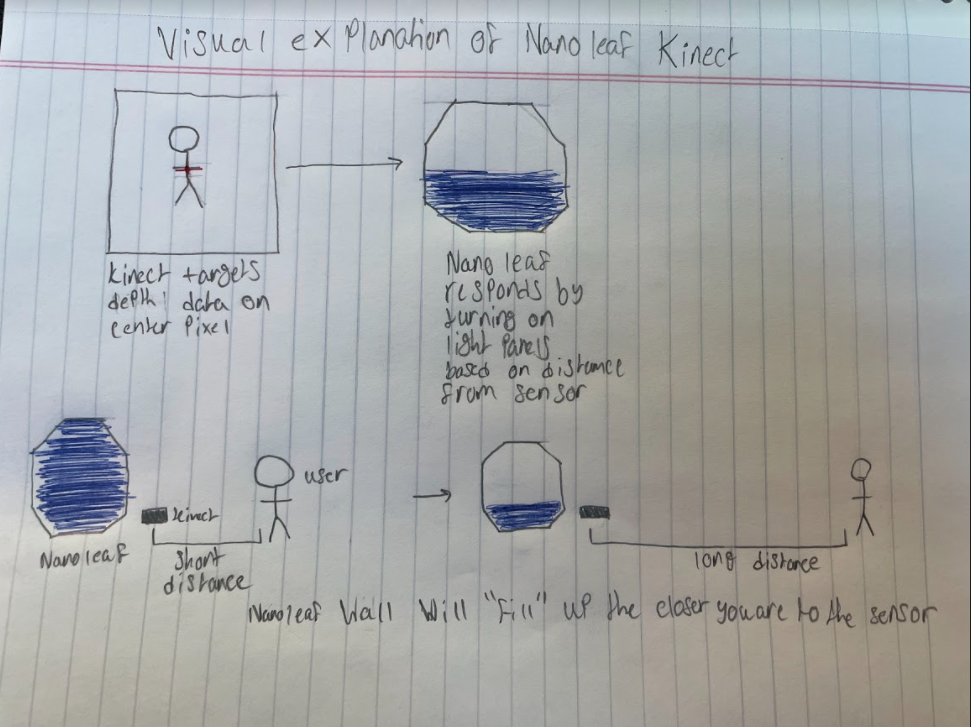 Visual explanation of Nanoleaf Kinect
Kinect targets
depth data on
center pixel
Nanoleaf
responds by
turning on
light panels
based on distance
from sensor
user
kinect
Nanoleaf
Short
distance
long distance
Nanoleaf Wall Will "Fill" up the closer you are to the sensor